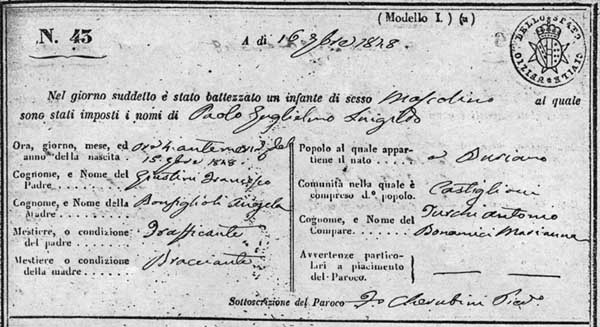 (Modello I.) (a)
N. 43
A di 16 9bre 1828.
DELLO STATO CIVILE
Nel giorno suddetto è stato battezzato un infante di sesso Mascolino al quale
sono stati imposti i nomi di Paolo Guglielmo
Ora, giorno, mese, ed ore 4 antemerid. del
anno della nascita. 15 9bre 1828.
Cognome, e Nome del Giustini Francesco
Padre.
Cognome, e Nome della Bonfiglioli Angela
Madre.
Mestiere, o condizione Trafficante
del padre
Mestiere o condizione Bracciante
della madre.
Popolo al quale appar-
tiene il nato a Buriano
Comunità nella quale è Castiglione
compreso do. popolo.
Cognome, e Nome del Turchi Antonio
Compare. Bonamici Marianna
Avvertenze partico-
lari a piacimento
del Paroco.
Sottoscrizione del Paroco Cherubini